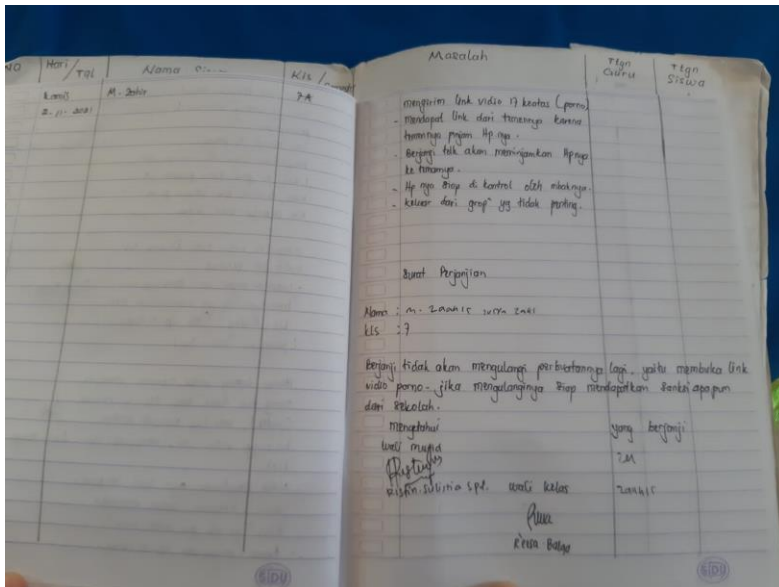 NO
Hari / Tgl
Nama
Kls /
Kamis
M. Zahir
7A
2-11-2021
Masalah
Ttgn Guru
Ttgn Siswa
mengirim link vidio 17 keatas (porno)
- mendapat link dari temennya karena
temennya pinjam Hp nya.
- Berjanji tdk akan meminjamkan Hpnya
ke temannya.
- Hp nya siap di kontrol oleh mbaknya.
- keluar dari grop" yg tidak penting.
Surat Perjanjian
Nama : M. Zaahis
kls : 7
Berjanji tidak akan mengulangi perbuatannya lagi. yaitu membuka link
vidio porno. jika mengulanginya siap mendapatkan sanksi apapun
dari sekolah.
mengetahui
yang berjanji
wali murid
wali kelas
Zaahis
SIDU
SIDU